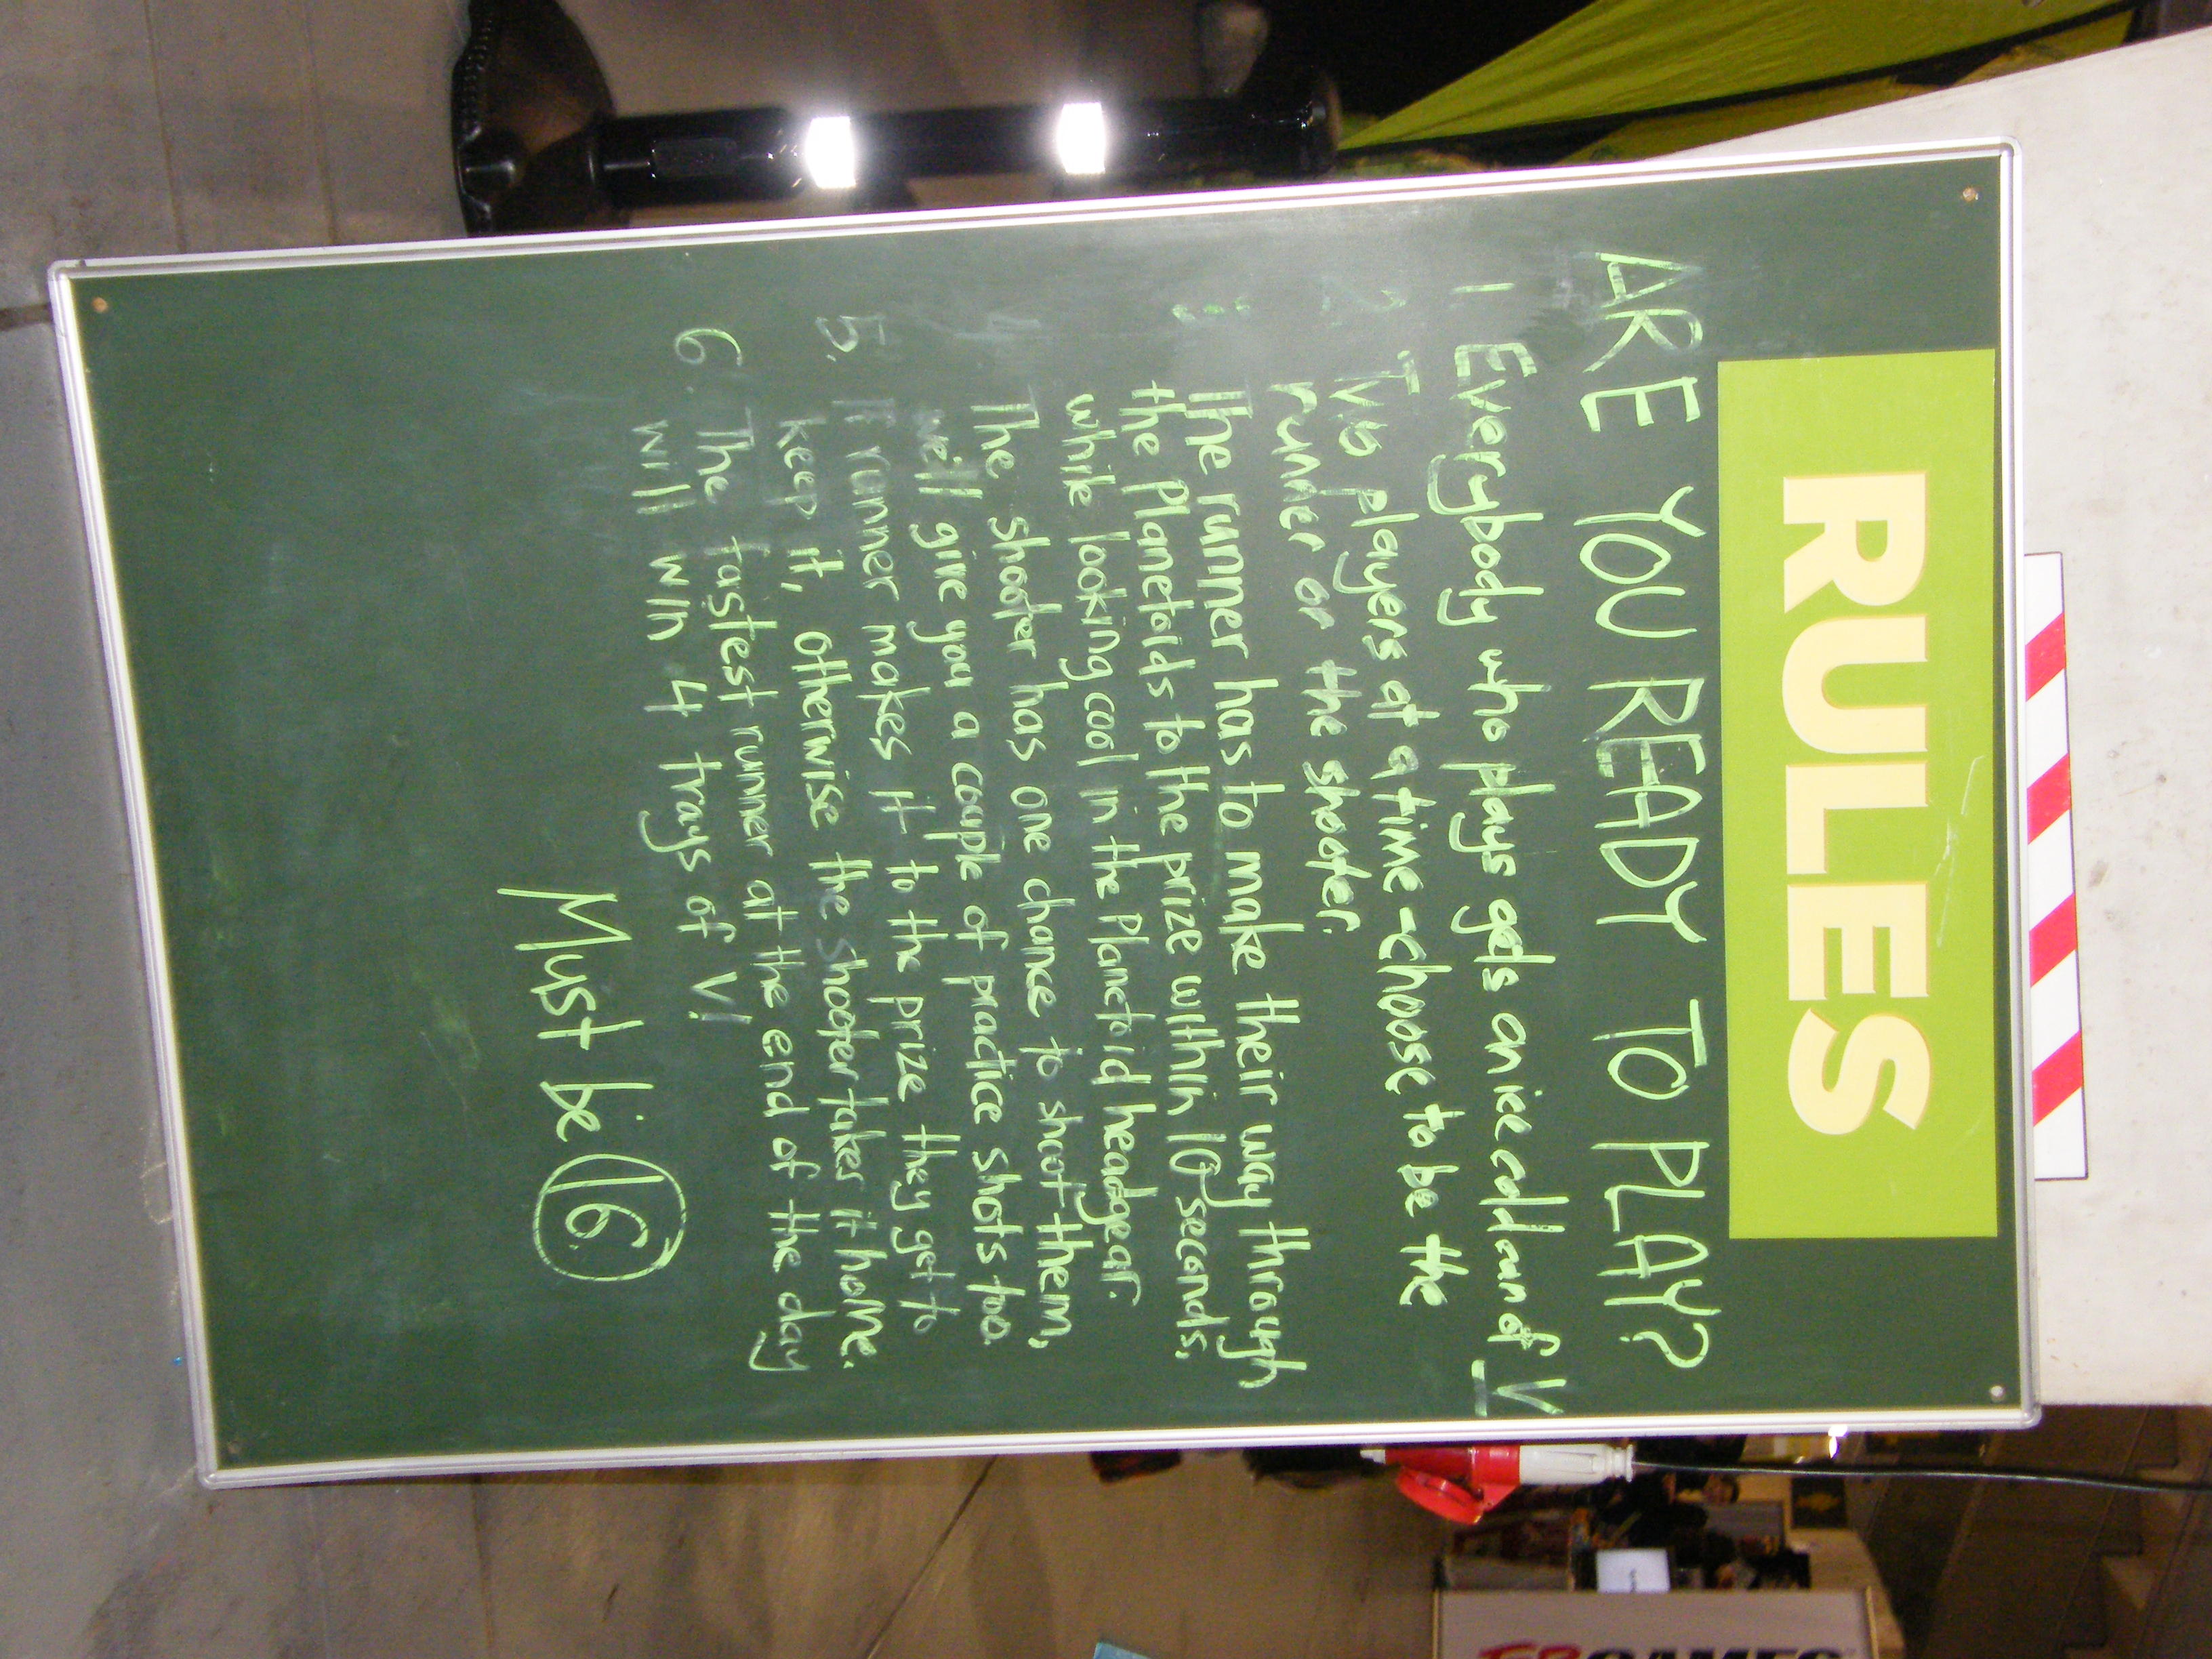 RULES
ARE YOU READY TO PLAY?
1 Everybody who plays gets a nice cold can of V
2 Two players at a time - choose to be the
runner or the shooter.
The runner has to make their way through
the Planetoids to the prize within 10 seconds,
while looking cool in the Planetoid headgear.
The shooter has one chance to shoot them,
we'll give you a couple of practice shots too.
5. If runner makes it to the prize they get to
keep it, otherwise the shooter takes it home.
6. The fastest runner at the end of the day
will win 4 trays of V!
Must be 16
EB GAMES